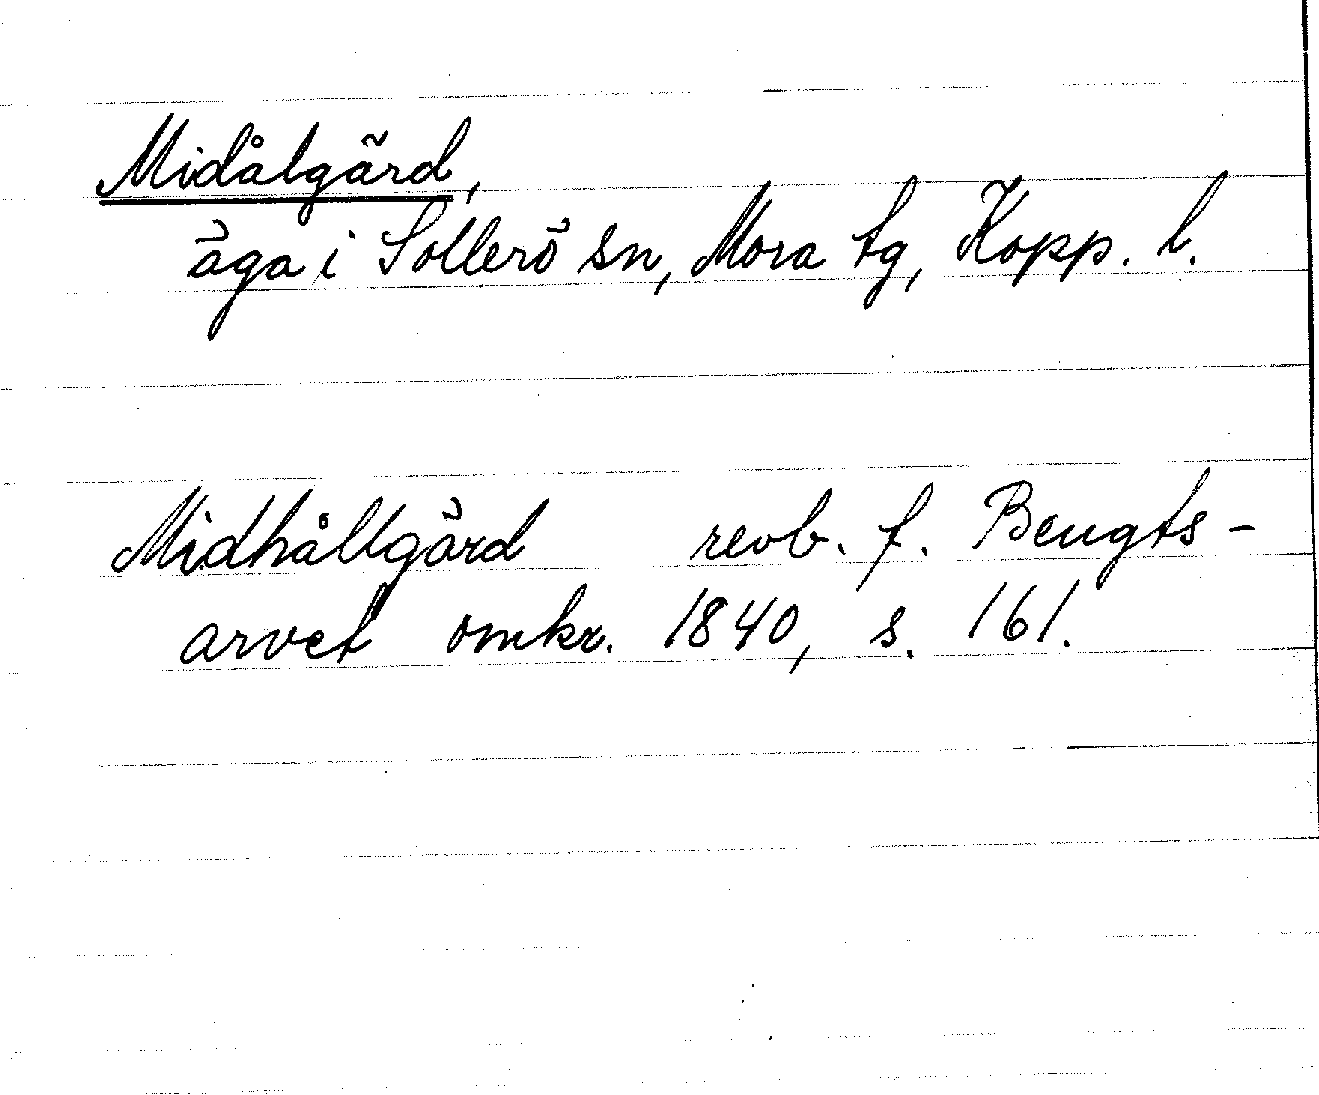 Midålgärd,
äga i Sollerö sn, Mora tg, Kopp. l.
Midhållgärd revb. f. Bengts-
arvet omkr. 1840, s. 161.